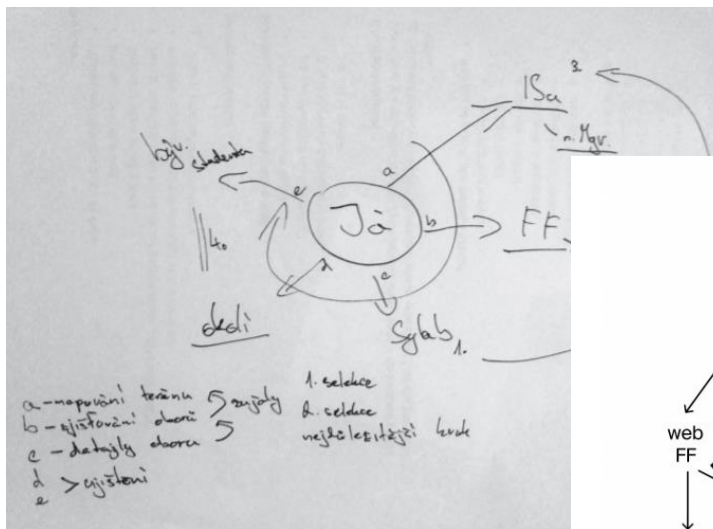 ISa 3.
n. Mgr.
býv. studenta
e
a
Já
b
FF
d
c
okolí
Sylab 1.
a - mapování terénu
b - zjišťování oborů
c - detaily oboru
d
e > ujištění
1. selekce
2. selekce
nejdůležitější krok
web
FF